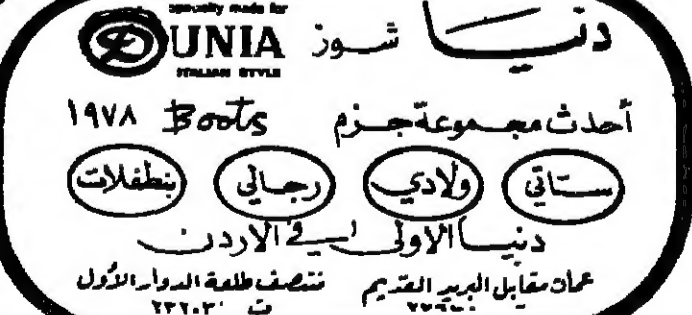 specially made for
DUNIA
ITALIAN STYLE
دنيا شوز
أحدث مجموعة جزم Boots ١٩٧٨
ستاتي ولادي رجالي بنطفلات
دنيا الاولى في الاردن
عمان مقابل البريد القديم
منتصف طلعة الدوار الأول
ت ٢٣٢٠٣٠